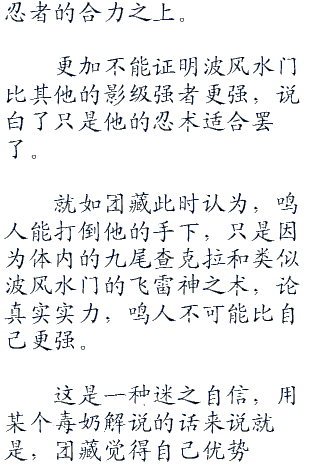 忍者的合力之上。
更加不能证明波风水门
比其他的影级强者更强，说
白了只是他的忍术适合罢
了。
就如团藏此时认为，鸣
人能打倒他的手下，只是因
为体内的九尾查克拉和类似
波风水门的飞雷神之术，论
真实实力，鸣人不可能比自
己更强。
这是一种迷之自信，用
某个毒奶解说的话来说就
是，团藏觉得自己优势